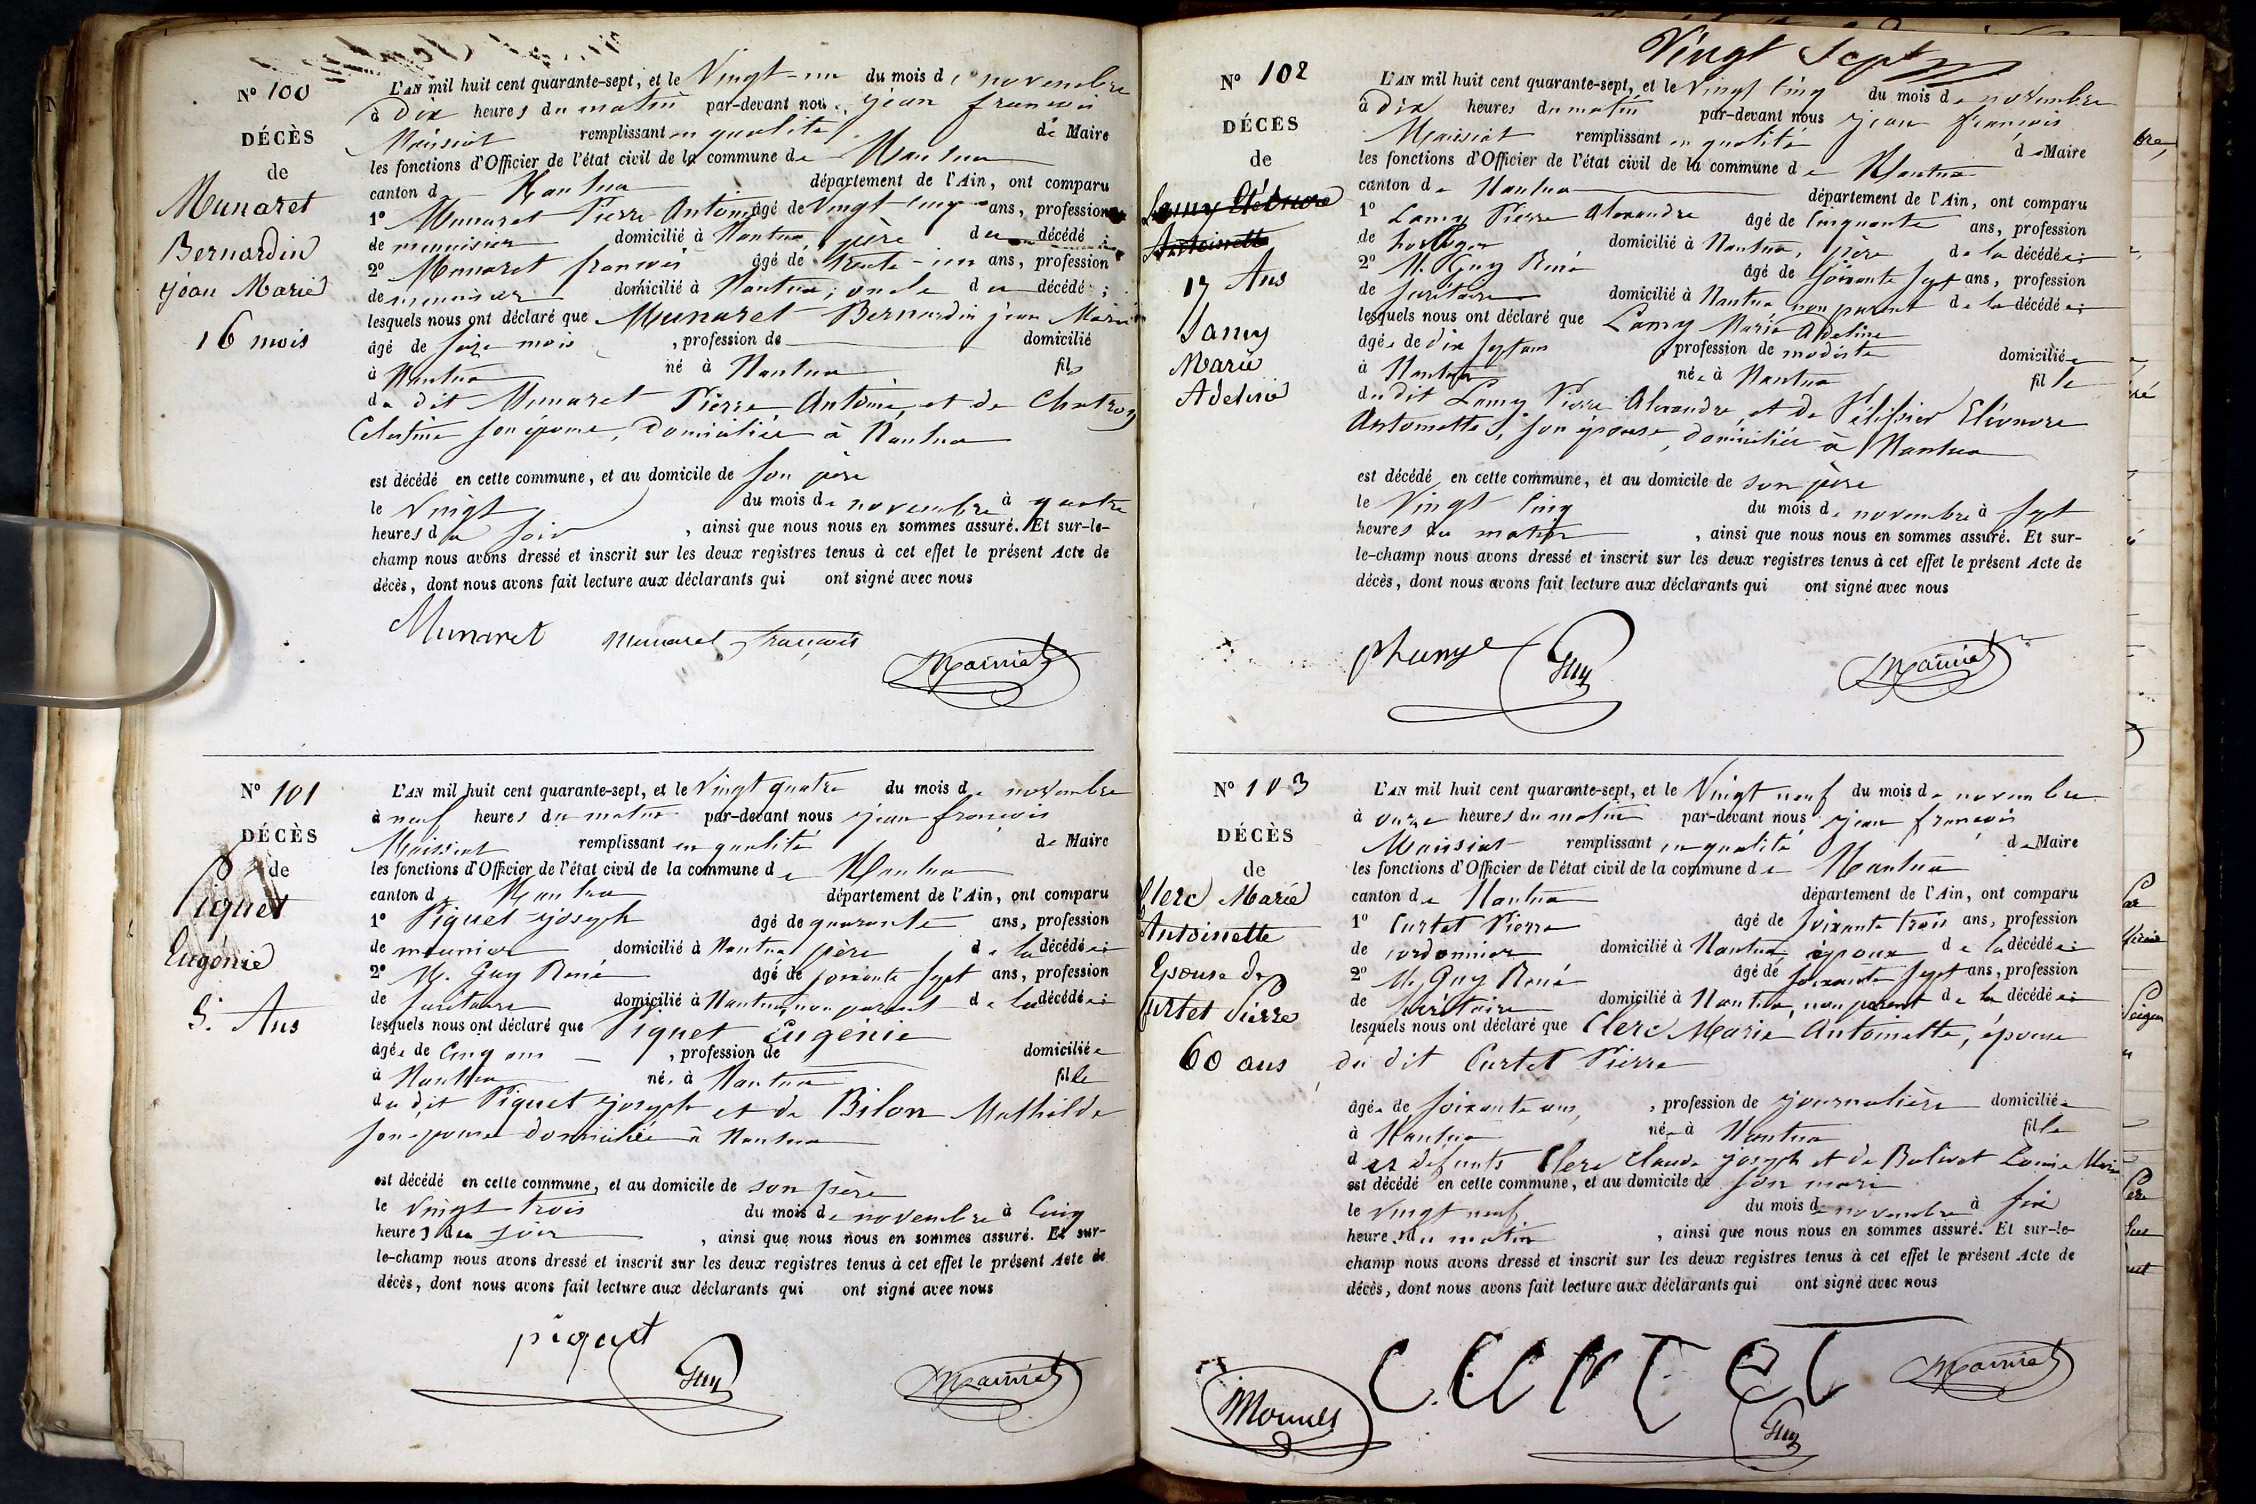 N° 100
DÉCÈS
de
Munaret
Bernardin
jean Marie
16 mois
L'AN mil huit cent quarante-sept, et le Vingt-un du mois de novembre
à Dix heures du matin par-devant nous jean francois
Maissiat remplissant en qualité de Maire
les fonctions d'Officier de l'état civil de la commune de Nantua
canton d Nantua département de l'Ain, ont comparu
1° Munaret Pierre Antoine âgé de Vingt cinq ans, profession
de menuisier domicilié à Nantua, père du décédé
2° Munaret francois âgé de trente-un ans, profession
de menuisier domicilié à Nantua, oncle du décédé ;
lesquels nous ont déclaré que Munaret Bernardin jean Marie
âgé de seize mois , profession de domicilié
à Nantua né à Nantua fils
du dit Munaret Pierre Antoine et de Chatron
Celestine son épouse, domiciliée à Nantua
est décédé en cette commune, et au domicile de son père
le Vingt du mois de novembre à quatre
heures du soir , ainsi que nous nous en sommes assuré. Et sur-le-
champ nous avons dressé et inscrit sur les deux registres tenus à cet effet le présent Acte de
décès, dont nous avons fait lecture aux déclarants qui ont signé avec nous
Munaret munaret françois
N° 101
DÉCÈS
de
Piquet
Eugénie
5. Ans
L'AN mil huit cent quarante-sept, et le Vingt quatre du mois de novembre
à neuf heures du matin par-devant nous jean francois
Maissiat remplissant en qualité de Maire
les fonctions d'Officier de l'état civil de la commune de Nantua
canton d Nantua département de l'Ain, ont comparu
1° Piquet joseph âgé de quarante ans, profession
de meunier domicilié à Nantua père de la décédée ;
2° M. Guy René âgé de soixante sept ans, profession
de secrétaire domicilié à Nantua, non parent de la décédée ;
lesquels nous ont déclaré que Piquet Eugénie
âgée de Cinq ans , profession de domiciliée
à Nantua née à Nantua fille
du dit Piquet joseph et de Bilon Mathilde
son épouse domiciliée à Nantua
est décédé en cette commune, et au domicile de son père
le Vingt trois du mois de novembre à Cinq
heures du soir , ainsi que nous nous en sommes assuré. Et sur-
le-champ nous avons dressé et inscrit sur les deux registres tenus à cet effet le présent Acte de
décès, dont nous avons fait lecture aux déclarants qui ont signé avec nous
piquet Guy
Vingt Sept
N° 102
DÉCÈS
de
Lamy Eléonore
Antoinette
17 Ans
Lamy
Marie
Adeline
L'AN mil huit cent quarante-sept, et le Vingt Cinq du mois de novembre
à Dix heures du matin par-devant nous jean francois
Maissiat remplissant en qualité de Maire
les fonctions d'Officier de l'état civil de la commune de Nantua
canton de Nantua département de l'Ain, ont comparu
1° Lamy Pierre Alexandre âgé de Cinquante ans, profession
de horloger domicilié à Nantua, père de la décédée ;
2° M. Guy René âgé de soixante sept ans, profession
de secrétaire domicilié à Nantua non parent de la décédée ;
lesquels nous ont déclaré que Lamy Marie Adeline
âgée de dix sept ans , profession de modiste domiciliée
à Nantua née à Nantua fille
du dit Lamy Pierre Alexandre et de Pélissier Eléonore
Antoinette, son épouse, domiciliée à Nantua
est décédé en cette commune, et au domicile de son père
le Vingt Cinq du mois de novembre à sept
heures du matin , ainsi que nous nous en sommes assuré. Et sur-
le-champ nous avons dressé et inscrit sur les deux registres tenus à cet effet le présent Acte de
décès, dont nous avons fait lecture aux déclarants qui ont signé avec nous
Guy
N° 103
DÉCÈS
de
Clerc Marie
Antoinette
Epouse de
Curtet Pierre
60 ans
L'AN mil huit cent quarante-sept, et le Vingt neuf du mois de novembre
à onze heures du matin par-devant nous jean francois
Maissiat remplissant en qualité de Maire
les fonctions d'Officier de l'état civil de la commune de Nantua
canton de Nantua département de l'Ain, ont comparu
1° Curtet Pierre âgé de soixante trois ans, profession
de cordonnier domicilié à Nantua, époux de la décédée ;
2° M. Guy René âgé de soixante sept ans, profession
de secrétaire domicilié à Nantua, non parent de la décédée ;
lesquels nous ont déclaré que Clerc Marie Antoinette, épouse
du dit Curtet Pierre
âgée de soixante ans, , profession de journalière domiciliée
à Nantua née à Nantua fille
des défunts Clerc Claude joseph et de Louise Marie
est décédé en cette commune, et au domicile de son mari
le Vingt neuf du mois de novembre à six
heures du matin , ainsi que nous nous en sommes assuré. Et sur-le-
champ nous avons dressé et inscrit sur les deux registres tenus à cet effet le présent Acte de
décès, dont nous avons fait lecture aux déclarants qui ont signé avec nous
CURTET
Guy